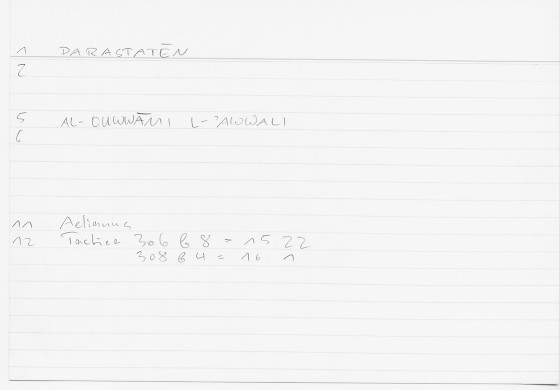 1 PARASTATĒN
2
5 AL-QUWWĀMI L-ʾAWWALI
6
11 Aelianus
12 Tactica 306 b 8 = 15 22
308 b 4 = 16 1